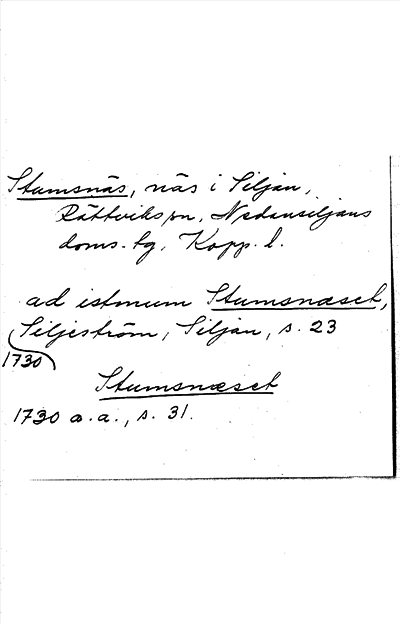 Stumsnäs, näs i Siljan,
Rättviks sn, Nedansiljans
doms. tg, Kopp. l.
ad istmum Stumsnæset,
Siljeström, Siljan, s. 23
1730
Stumsnæset
1730 a. a., s. 31.